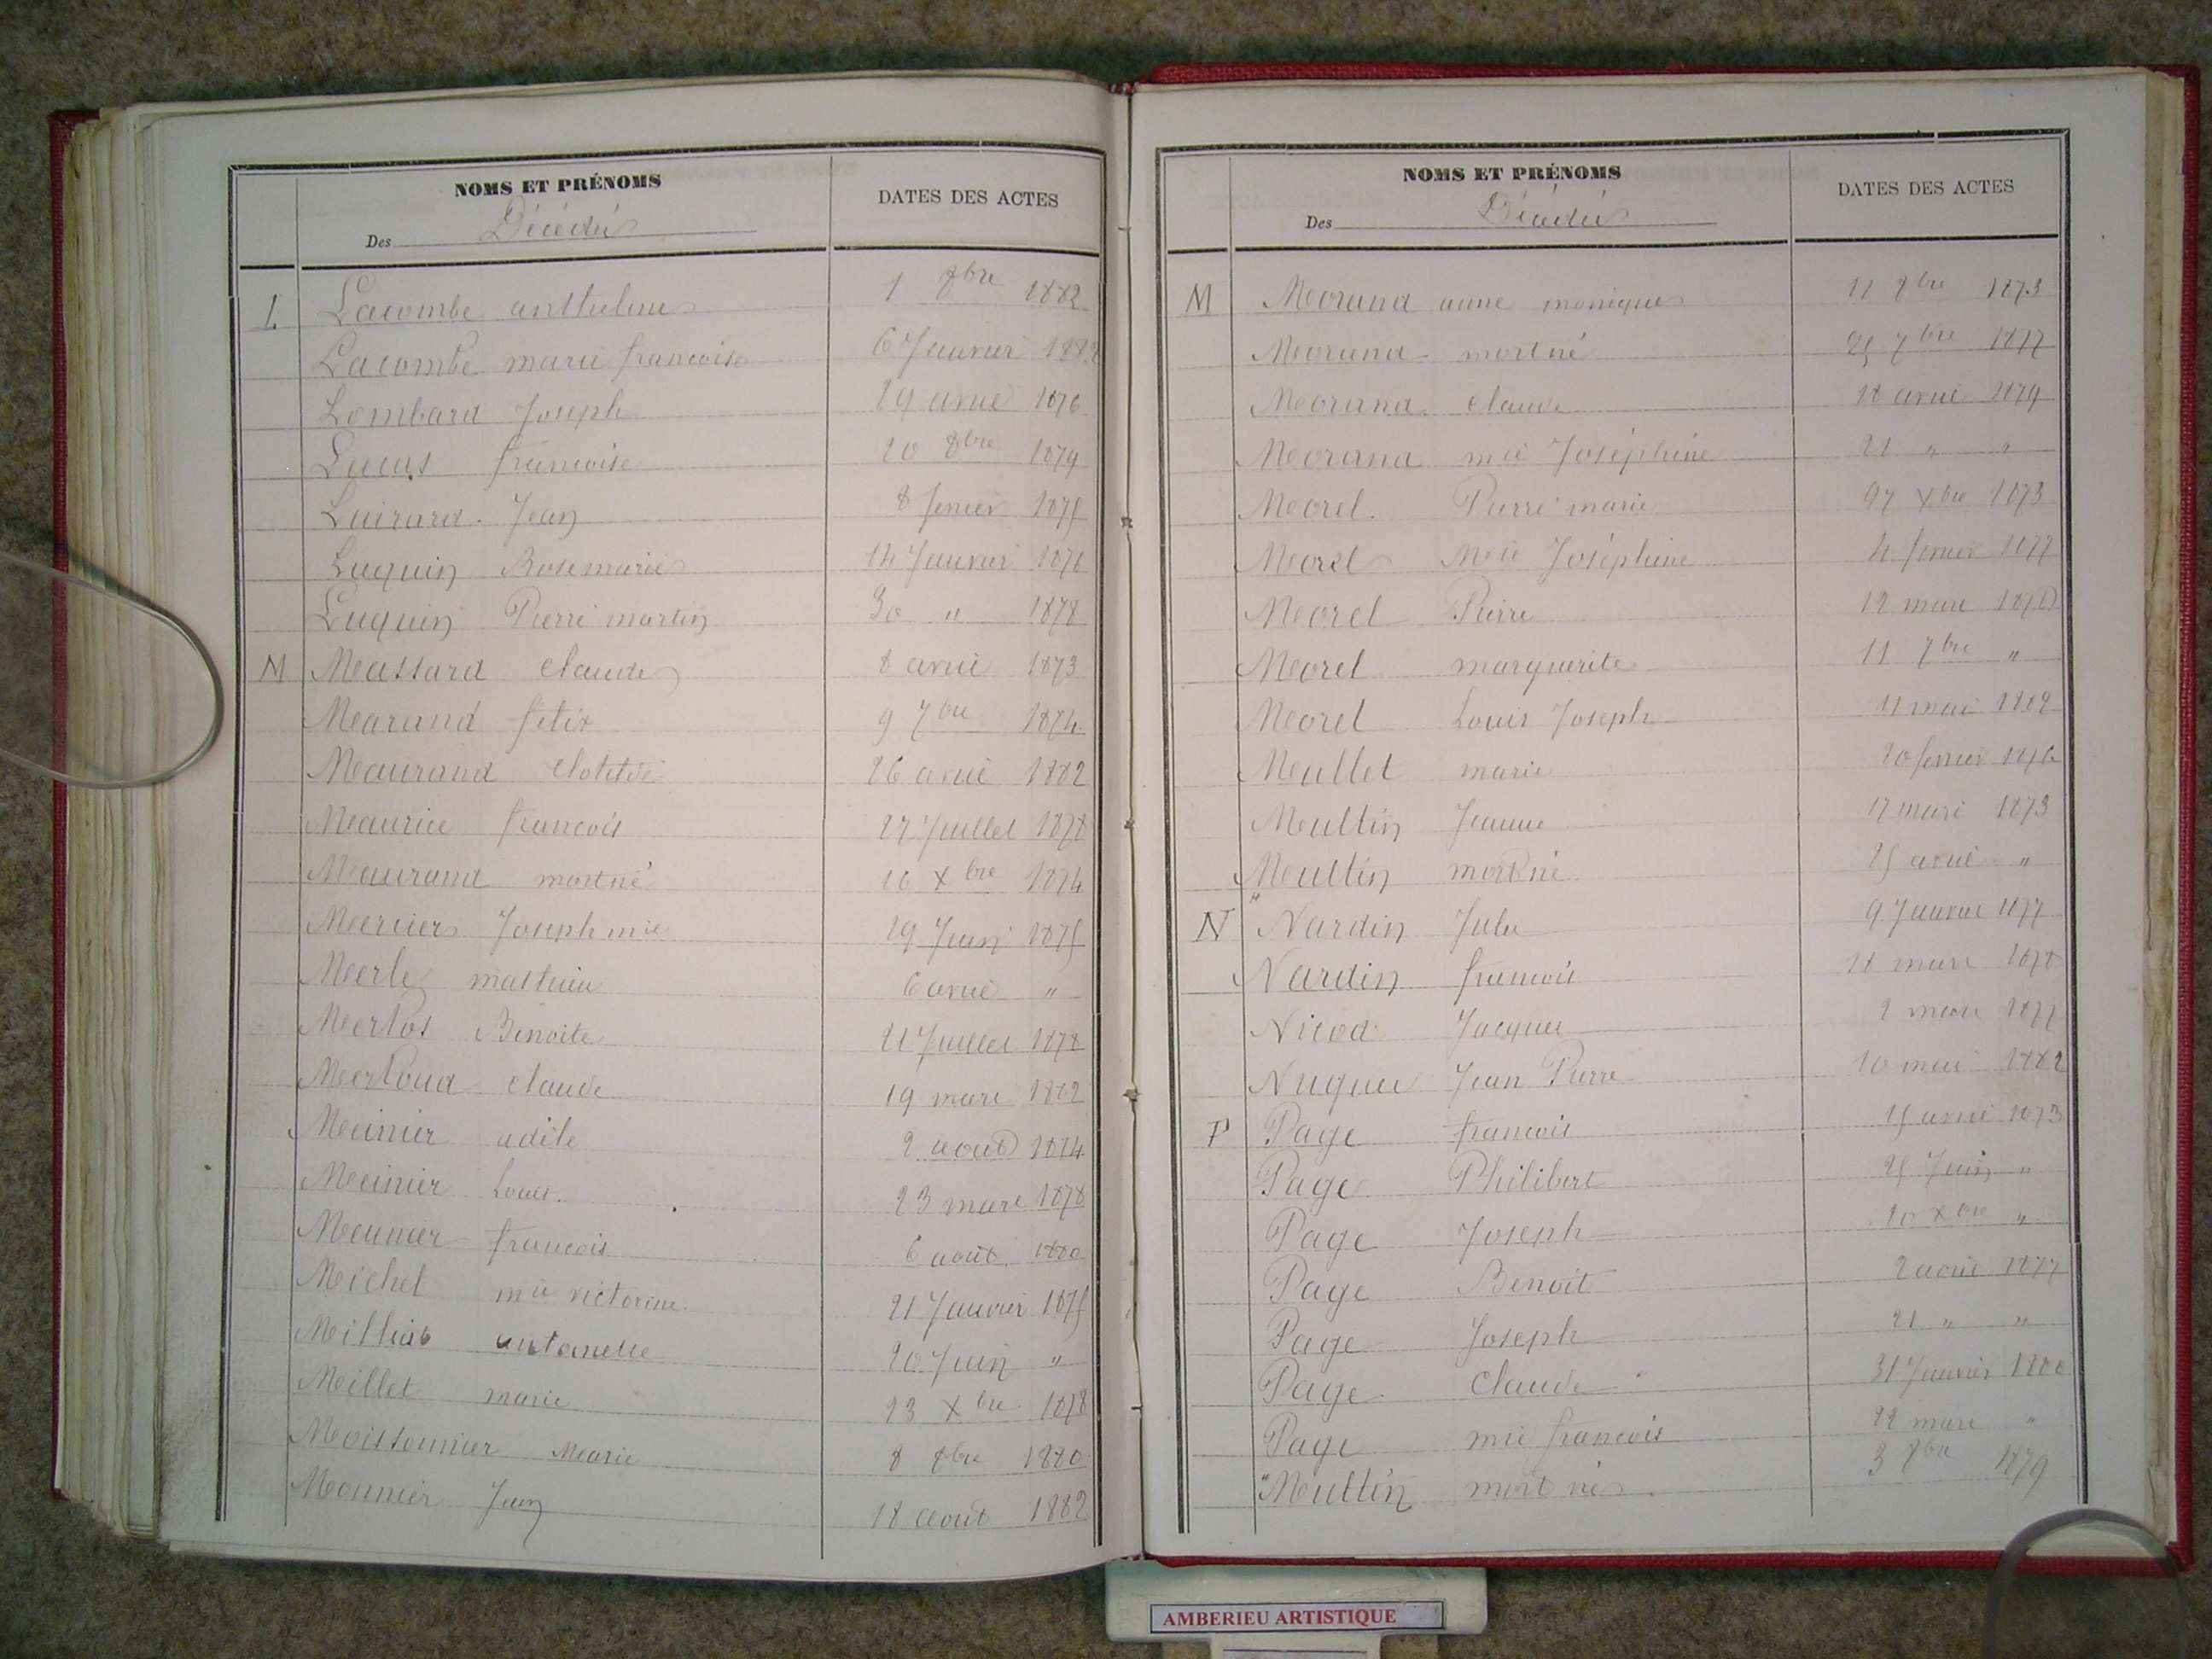 NOMS ET PRÉNOMS
Des Décédés
DATES DES ACTES
L Lacombe anthelme 1 8bre 1882
Lacombe marie francoise 6 Janvier 1882
Lombard Joseph 29 avril 1876
Lucas francoise 20 8bre 1879
Luirard Jean 8 fevrier 1875
Luquin Rose marie 14 Janvier 1876
Luquin Pierre martin 30 " 1878
M Massard Claude 8 avril 1873
Marand félix 9 7bre 1874
Maurand Clotilde 26 avril 1882
Maurice francois 27 Juillet 1878
Maurand mortné 10 Xbre 1874
Mercier Joseph mie 29 Juin 1875
Merle mathieu 6 avril "
Merlos Benoite 21 Juillet 1878
Merloud Claude 19 mars 1882
Meinier adèle 2 aout 1874
Meinier Louis 23 mars 1878
Meunier francois 6 août 1880
Michel mie victorine 21 Janvier 1875
antoinette 20 Juin "
Millet marie 23 Xbre 1878
Moissonnier Marie 8 8bre 1880
Monnier Jean 18 aout 1882
NOMS ET PRÉNOMS
Des Décédés
DATES DES ACTES
M Morand anne monique 11 1873
Morand mortné 25 7bre 1877
Morand Claude 18 avril 1879
Morand mie Joséphine 21 " "
Morel Pierre marie Xbre 1873
Morel Mie Joséphine 4 fevrier 1877
Morel Pierre 12 mars 1878
Morel marguerite 11 7bre "
Morel Louis Joseph 11 mai 1882
Mullet marie 20 fevrier 1876
Multin Jeanne 17 mars 1873
Multin mortné 25 avril "
N Nardin Jules 9 Janvier 1877
Nardin francois 18 mars 1878
Nicod Jacques 2 mars 1877
Nuguer Jean Pierre 10 mai 1882
P Page francois 15 avril 1873
Page Philibert 25 Juin "
Page Joseph 20 Xbre "
Page Benoit 2 1877
Page Joseph 21 " "
Page Claude 31 Janvier 1880
Page mie francois 22 mars "
" Multin mort né 3 8bre 1879
AMBERIEU ARTISTIQUE